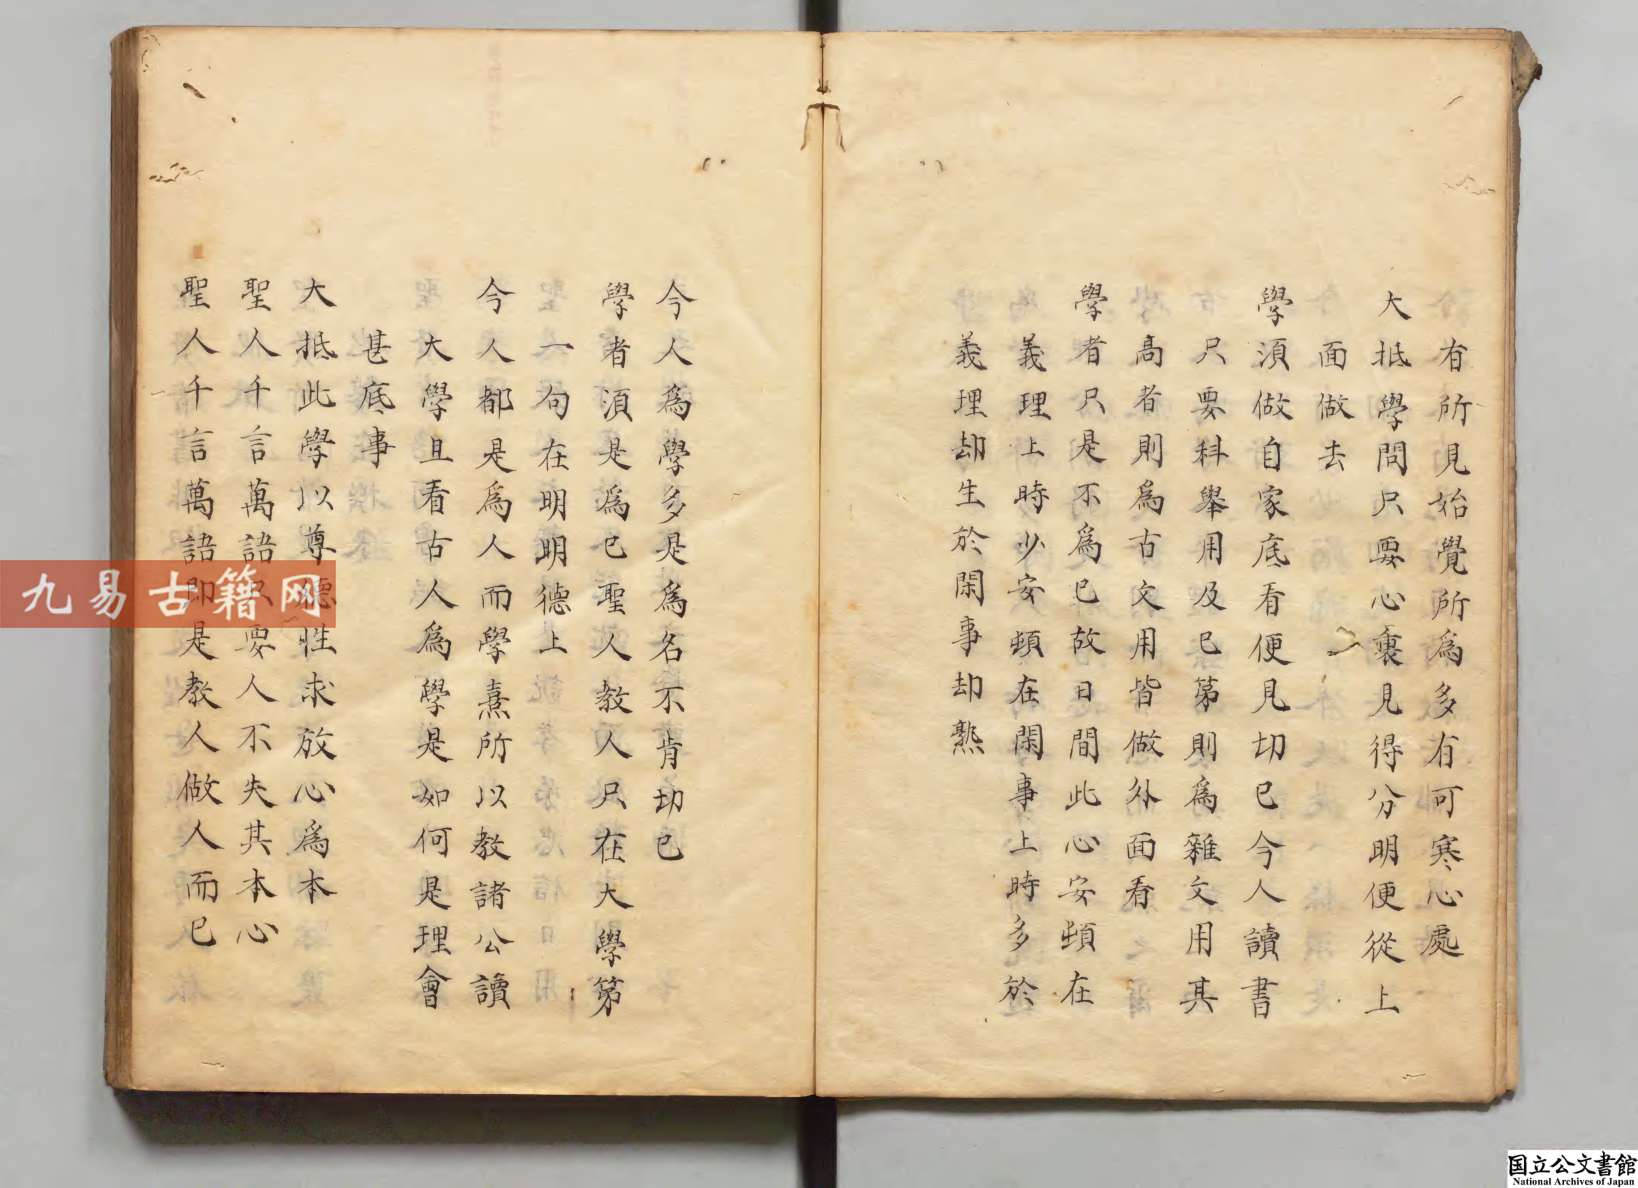 有所見始覺所為多有可寒心處
大抵學問只要心裏見得分明便從上
面做去
學須做自家底看便見切已今人讀書
只要科舉用及已第則為雜文用其
高者則為古文用皆做外面看
學者只是不為已故日間此心安頓在
義理上時少安頓在閑事上時多於
義理却生於閑事却熟
今人為學多是為名不肯切已
學者須是為已聖人教人只在大學第
一句在明明德上
今人都是為人而學熹所以教諸公讀
大學且看古人為學是如何是理會
甚底事
大抵此學以尊德性求放心為本
聖人千言萬語只要人不失其本心
聖人千言萬語即是教人做人而已
九易古籍网
国立公文書館
National Archives of Japan